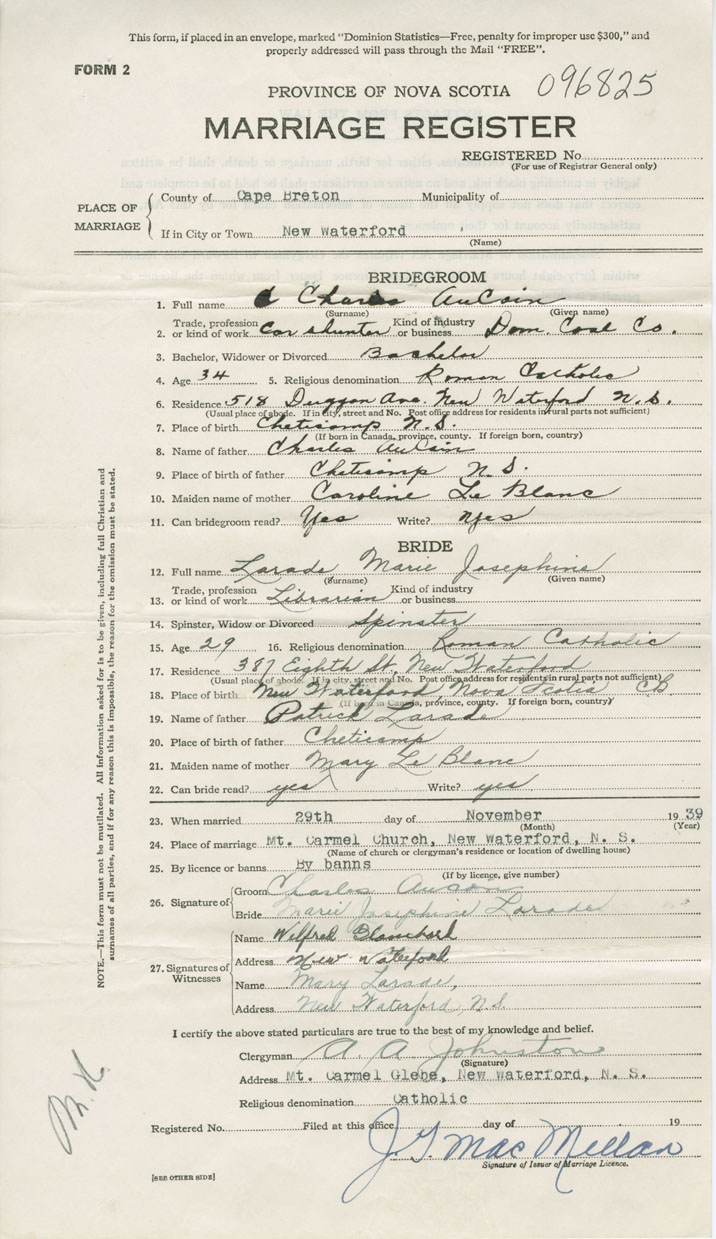 This form, if placed in an envelope, marked "Dominion Statistics—Free, penalty for improper use $300," and
properly addressed will pass through the Mail "FREE".
FORM 2
PROVINCE OF NOVA SCOTIA 096825
MARRIAGE REGISTER
REGISTERED No.
(For use of Registrar General only)
PLACE OF MARRIAGE
County of Cape Breton Municipality of
If in City or Town New Waterford
(Name)
BRIDEGROOM
1. Full name Charles AuCoin
(Surname) (Given name)
2. Trade, profession or kind of work Car shunter Kind of industry or business Dom. Coal Co.
3. Bachelor, Widower or Divorced Bachelor
4. Age 34 5. Religious denomination Roman Catholic
6. Residence 518 Duggan Ave. New Waterford N.S.
(Usual place of abode. If in city, street and No. Post office address for residents in rural parts not sufficient)
7. Place of birth Cheticamp N.S.
(If born in Canada, province, county. If foreign born, country)
8. Name of father Charles AuCoin
9. Place of birth of father Cheticamp N.S.
10. Maiden name of mother Caroline Le Blanc
11. Can bridegroom read? Yes Write? yes
BRIDE
12. Full name Larade Marie Josephine
(Surname) (Given name)
13. Trade, profession or kind of work Librarian Kind of industry or business
14. Spinster, Widow or Divorced Spinster
15. Age 29 16. Religious denomination Roman Catholic
17. Residence 387 Eighth St. New Waterford
(Usual place of abode. If in city, street and No. Post office address for residents in rural parts not sufficient)
18. Place of birth New Waterford, Nova Scotia CB
(If born in Canada, province, county. If foreign born, country)
19. Name of father Patrick Larade
20. Place of birth of father Cheticamp
21. Maiden name of mother Mary Le Blanc
22. Can bride read? yes Write? yes
23. When married 29th day of November 1939
(Month) (Year)
24. Place of marriage Mt. Carmel Church, New Waterford, N. S.
(Name of church or clergyman's residence or location of dwelling house)
25. By licence or banns By banns
(If by licence, give number)
26. Signature of
Groom Charles Aucoin
Bride Marie Josephine Larade
27. Signatures of Witnesses
Name Wilfred Blanchard
Address New Waterford
Name Mary Larade,
Address New Waterford, N.S.
I certify the above stated particulars are true to the best of my knowledge and belief.
Clergyman A. A. Johnston
(Signature)
Address Mt. Carmel Glebe, New Waterford, N. S.
Religious denomination Catholic
Registered No. Filed at this office day of 19
J. G. MacMillan
Signature of Issuer of Marriage Licence.
[SEE OTHER SIDE]
NOTE.—This form must not be mutilated. All information asked for is to be given, including full Christian and
surnames of all parties, and if for any reason this is impossible, the reason for the omission must be stated.